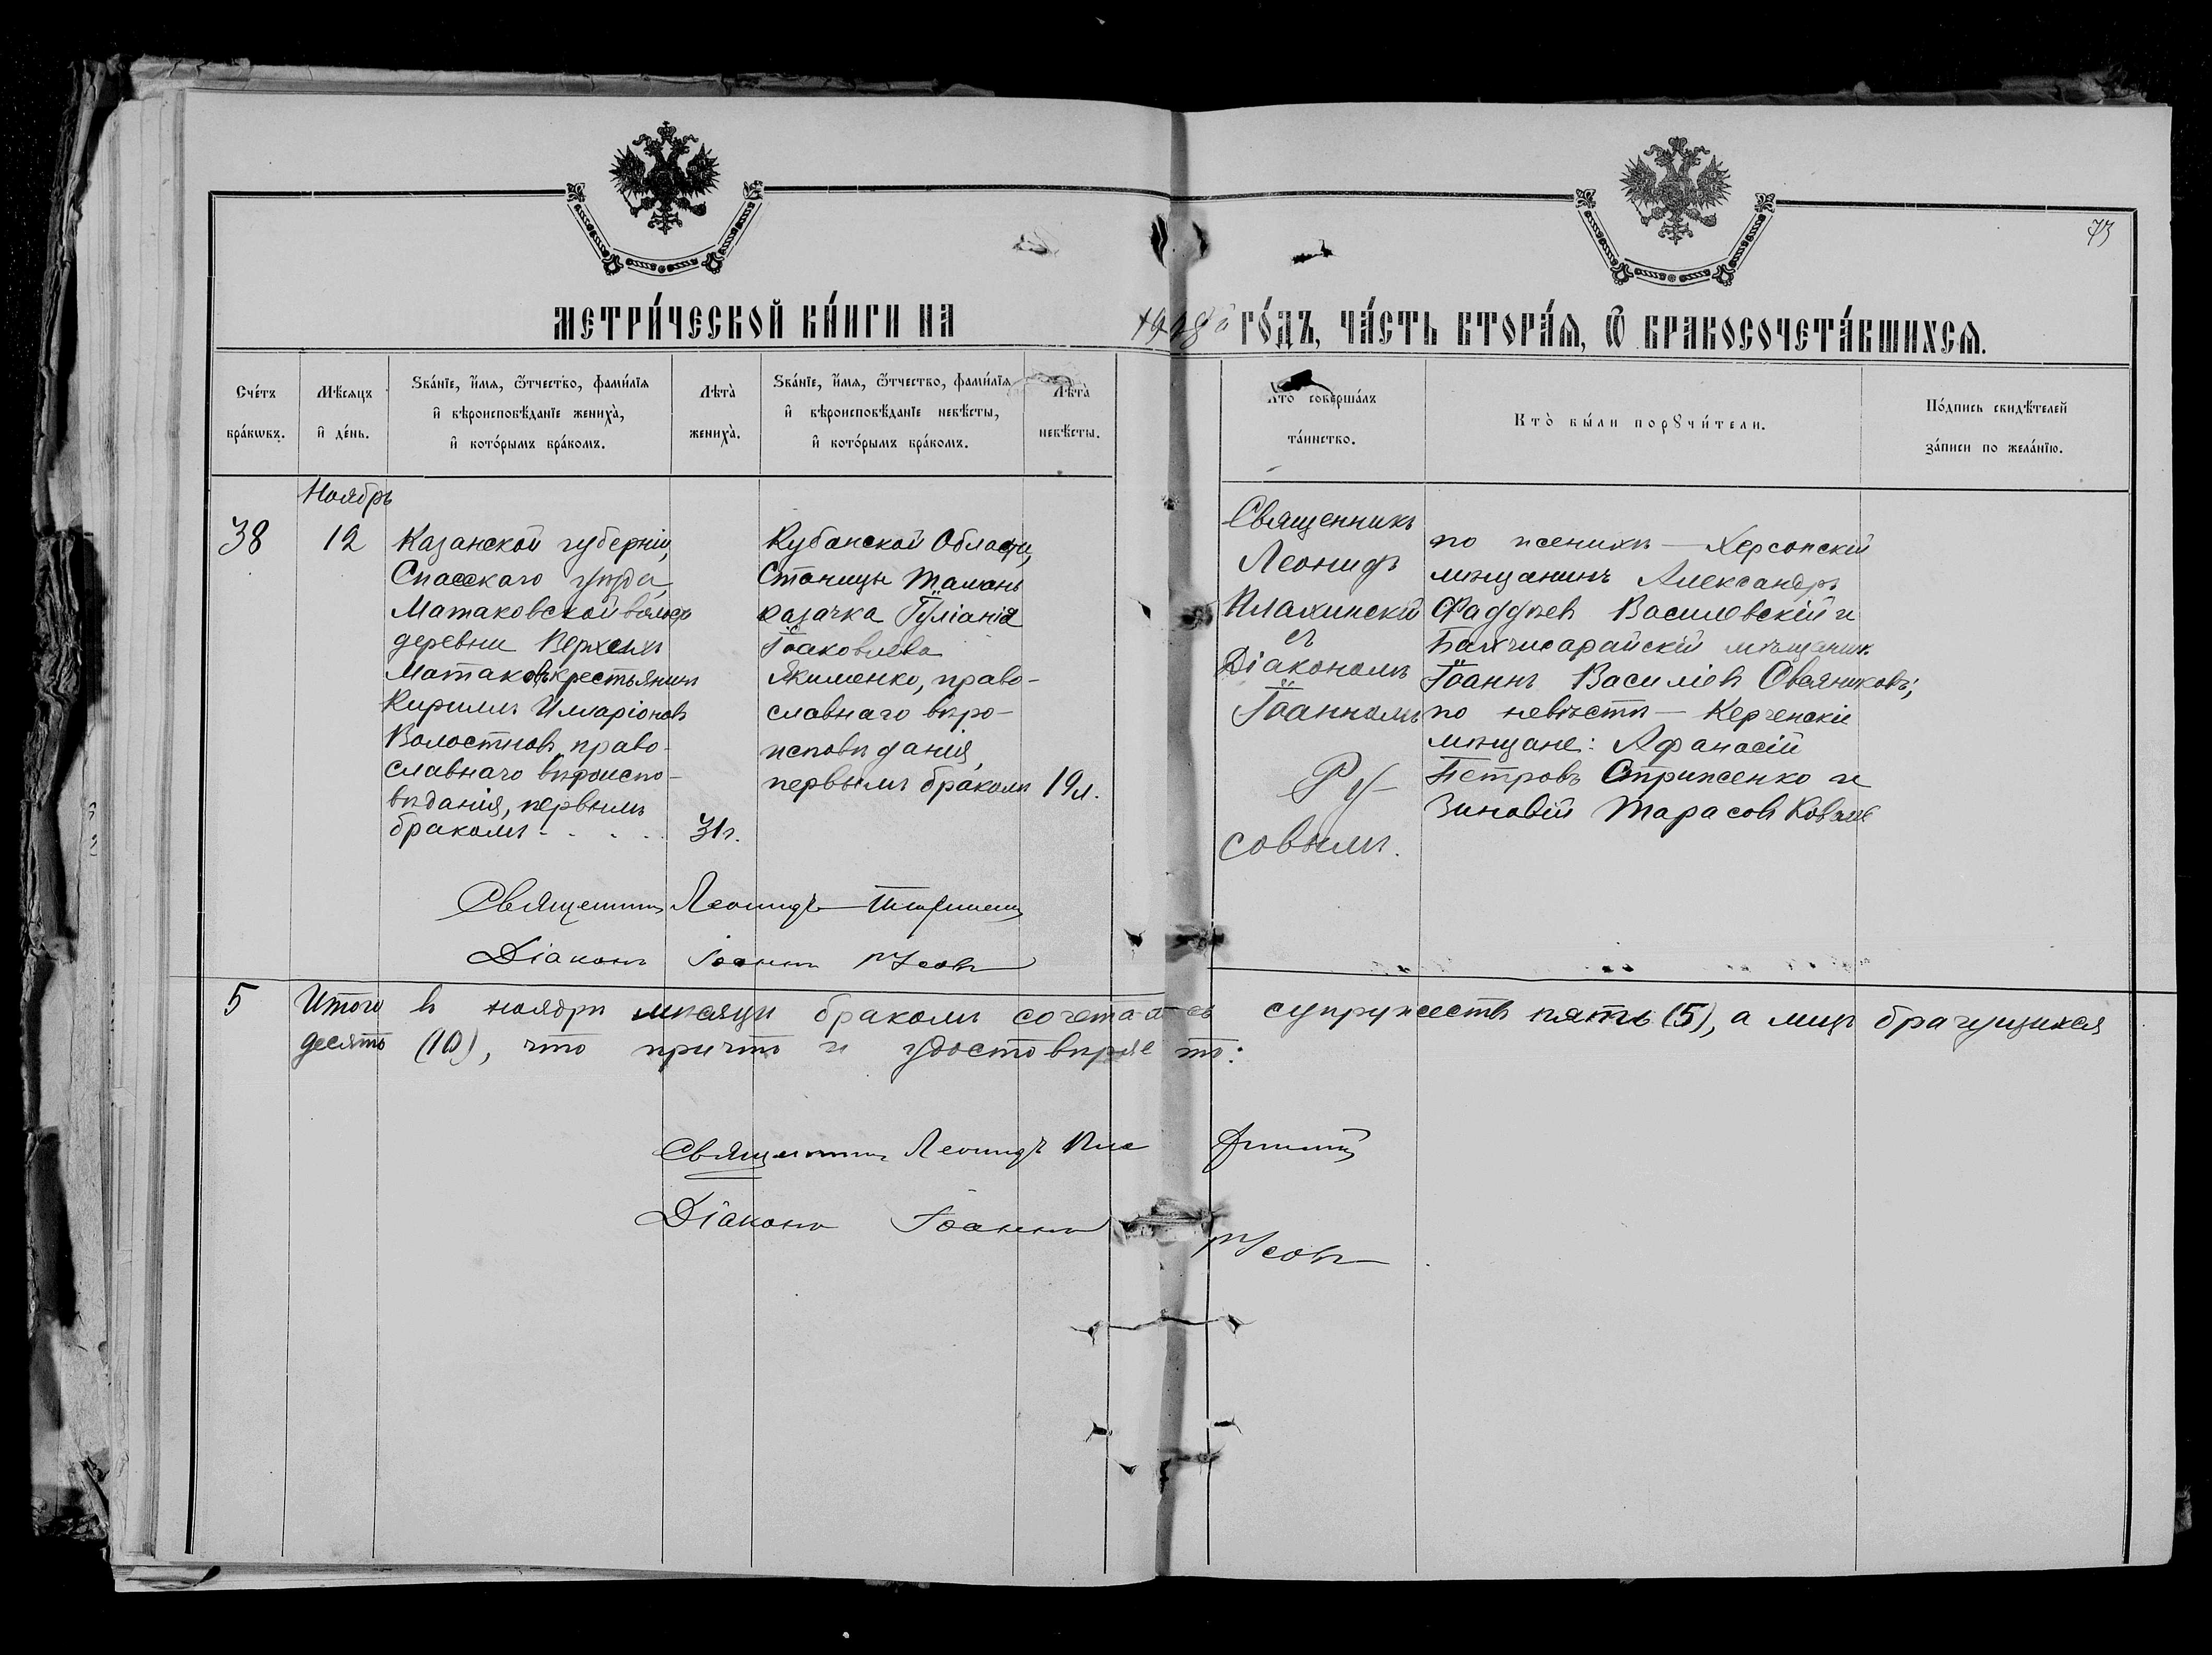 73
МЕТРИ́ЧЕСКОЙ КНИ́ГИ НА 1908й ГО́ДЪ, ЧА́СТЬ ВТОРА́Я, Ѿ БРАКОСОЧЕТА́ВШИХСЯ.
Сче́тъ бра́кѡвъ.
Мѣ́сяцъ и҆ де́нь.
Зва́нїе, и҆́мя, ѻ҆́тчество, фами́лїя
и҆ вѣроисповѣ́данїе жениха̀,
и҆ кото́рымъ бра́комъ.
Лѣта̀ жениха̀.
Зва́нїе, и҆́мя, ѻ҆́тчество, фами́лїя
и҆ вѣроисповѣ́данїе невѣ́сты,
и҆ кото́рымъ бра́комъ.
Лѣта̀ невѣ́сты.
Кто̀ соверша́лъ та́инство.
Кто̀ бы́ли порꙋчи́тели.
По́дпись свидѣ́телей
за́писи по жела́нїю.
Ноябрь
38
12
Казанской губерніи,
Спасскаго уѣзда,
Матаковской волос.
деревни Верхнихъ
Матаковъ крестьянинъ
Кириллъ Илларіоновъ
Волостновъ, право-
славнаго вѣроиспо-
вѣданія, первымъ
бракомъ
31г.
Кубанской Области,
Станицы Тамань
казачка Іуліанія
Іаковлева
Якименко, право-
славнаго вѣро-
исповѣданія,
первымъ бракомъ
19л.
Священникъ
Леонидъ
Плахинскій
съ
Діакономъ
Іоанномъ
Ру-
совымъ.
по женихѣ — Херсонскій
мѣщанинъ Александръ
Фаддѣевъ Василевскій и
Бахчисарайскій мѣщанин.
Іоаннъ Василіевъ Овсяниковъ;
по невѣстѣ — Керченскіе
мѣщане: Афанасій
Петровъ Стриженко и
Зиновій Тарасовъ
Священникъ Леонидъ
Діаконъ Іоаннъ Русовъ
5
Итого въ ноябрѣ мѣсяцѣ бракомъ сочеталось супружествъ пять (5), а лицъ брачущихся
десять (10), что причтъ и удостовѣряетъ:
Священникъ Леонидъ
Діаконъ Іоаннъ Русовъ